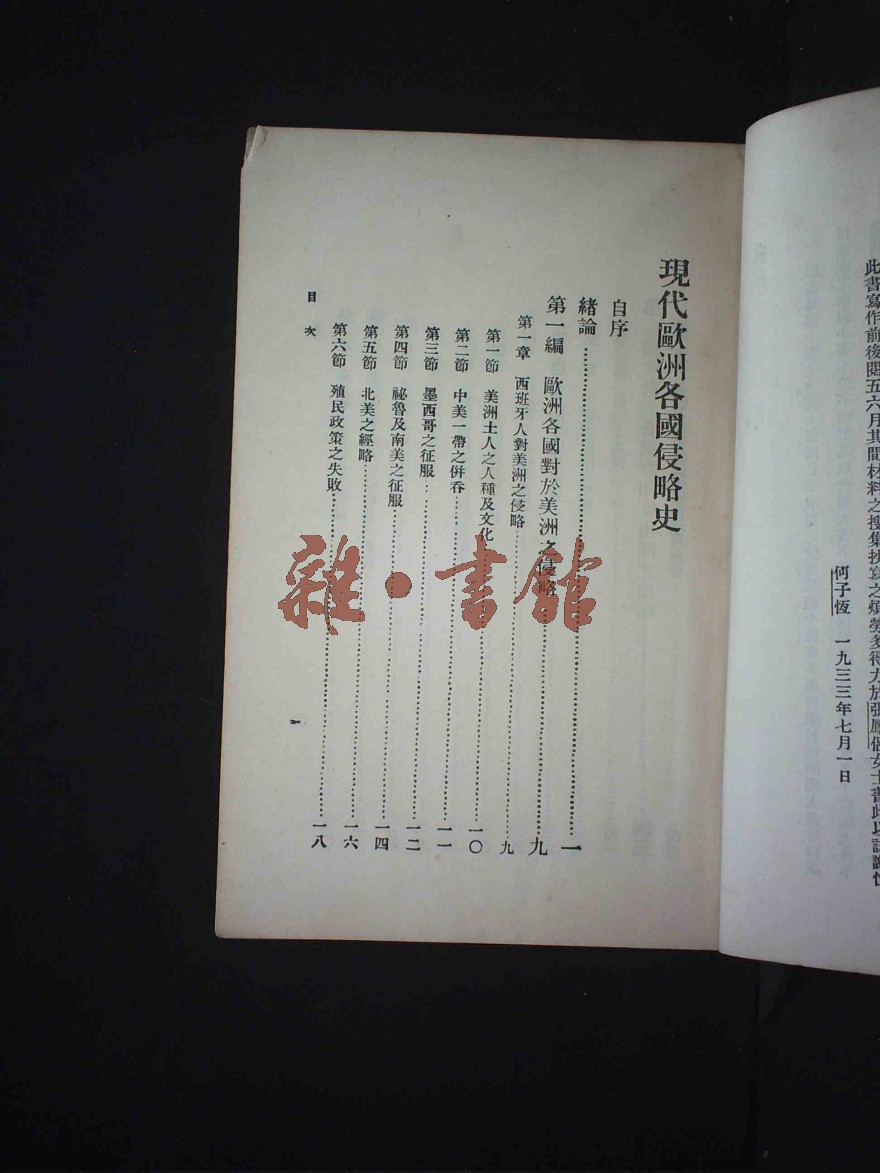 此書寫作前後閱五六月其間材料之搜集抄寫之煩勞多得力於張
女士書此以誌謝忱
何子恆 一九三三年七月一日
現代歐洲各國侵略史
自序
緒論……一
第一編 歐洲各國對於美洲之侵略……九
第一章 西班牙人對美洲之侵略……九
第一節 美洲土人之人種及文化……一〇
第二節 中美一帶之併吞……一一
第三節 墨西哥之征服……一二
第四節 祕魯及南美之征服……一四
第五節 北美之經略……一六
第六節 殖民政策之失敗……一八
目次
一
雜·書館